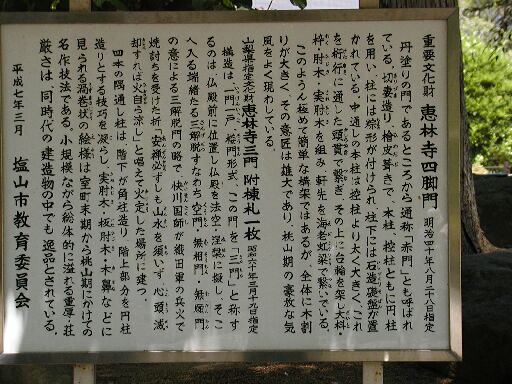 重要文化財 恵林寺四脚門 明治四十年八月二十八日指定
丹塗りの門であるところから通称「赤門」とも呼ばれ
ている。切妻造り、檜皮葺きで、本柱、控柱ともに円柱
を用い、柱には粽形が付けられ、柱下には石造礎盤が置
かれている。中通しの本柱は控柱より大く大きく、これ
を桁行に通した頭貫で繋ぎ、その上に台輪を架し大斗・
枠肘木・実肘木を組み、軒先を海老虹梁で繋いでいる。
このようん極めて簡単な構架ではあるが、全体に木割
りが大きく、その意匠は雄大であり、桃山期の豪放な気
風をよく現わしている。
山梨県指定文化財 恵林寺三門 附棟札一枚
構造は、一門一戸、楼門形式、この門を「三門」と称す
るのは、仏殿前に位置し仏殿を法空・涅槃に擬し、そこ
へ入る端緒たる三解脱すなわち空門、無相門、無願門
の意による三解脱門の略で、快川国師が織田軍の兵火で
焼討ちを受けた折「安禅必ずしも山水を須いず、心頭滅
却すれば火自ら涼し」と唱えて火定した場所に建つ。
四本の隅通し柱は、階下が角柱造り、階上部分を円柱
造りとする技巧を凝らし、実肘木・板肘木・木鼻などに
見られる渦巻状の絵様は室町末期から桃山期にかけての
名作技法である。小規模ながら総体的に溢れる重厚・荘
厳さは、同時代の建造物の中でも逸品とされている。
平成七年三月 塩山市教育委員会